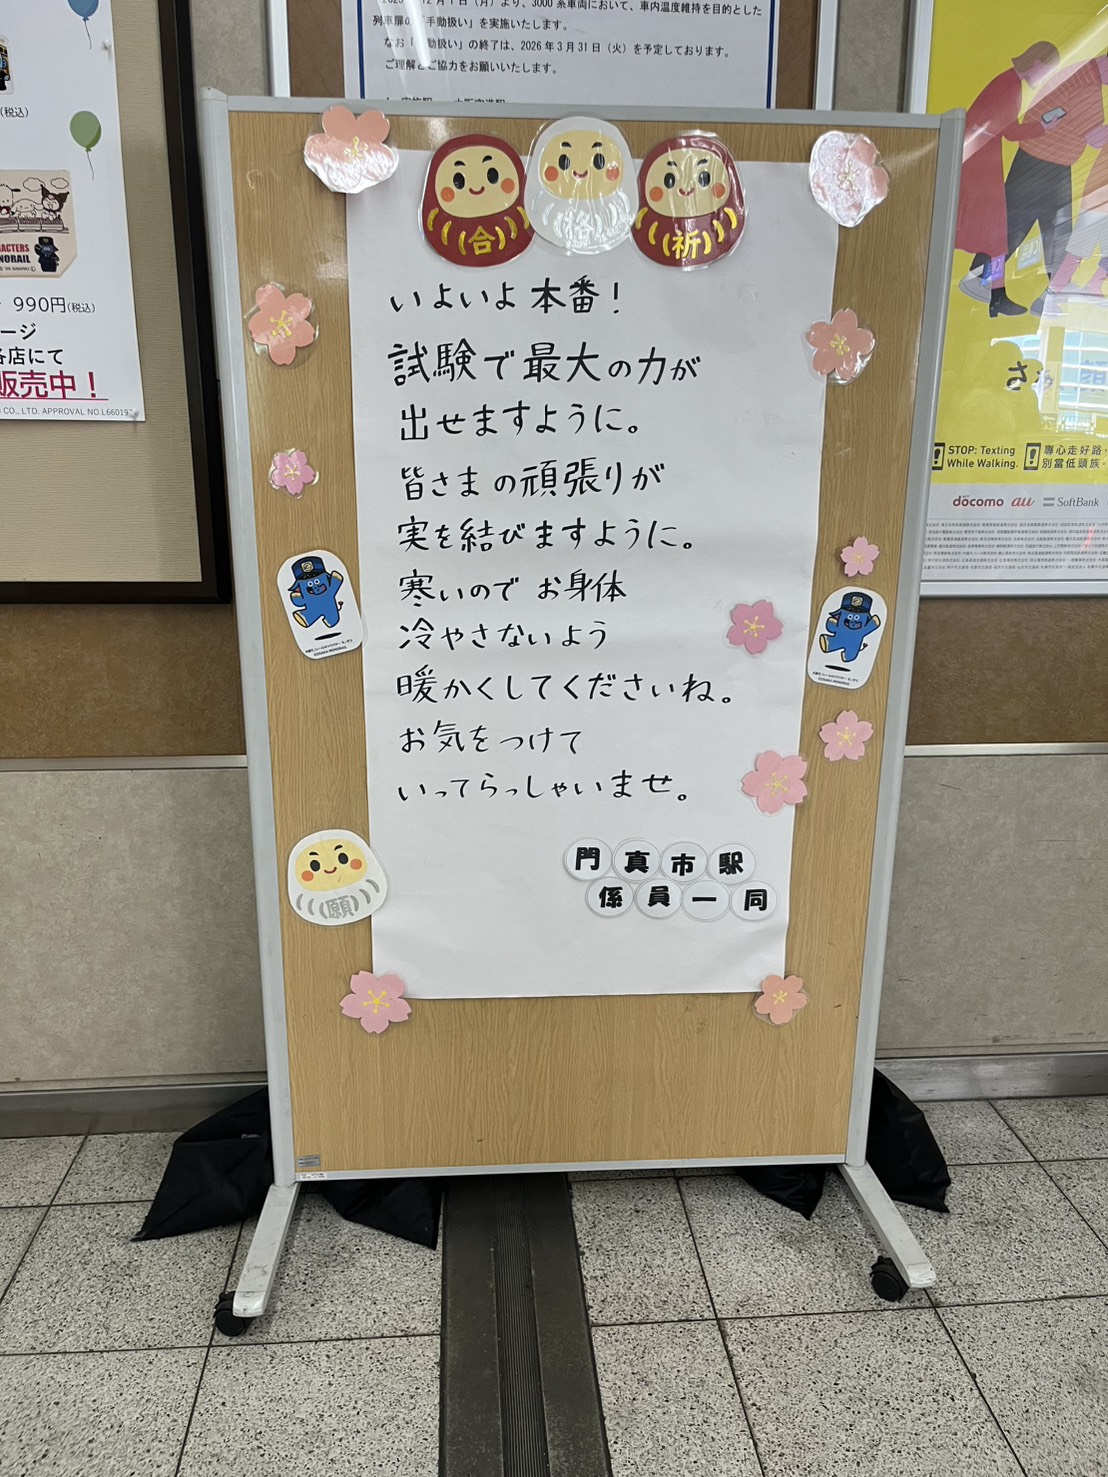 12月1日(月)より、3000系車両において、車内温度維持を目的とした
「手動扱い」を実施いたします。
の終了は、2026年3月31日(火)を予定しております。
ご理解とご協力をお願いいたします。
(税込)
990円(税込)
ージ
各店にて
販売中！
CO., LTD. APPROVAL NO.L66019
合
格
祈
いよいよ本番！
試験で最大の力が
出せますように。
皆さまの頑張りが
実を結びますように。
寒いので お身体
冷やさないよう
暖かくしてくださいね。
お気をつけて
いってらっしゃいませ。
願
門真市駅
係員一同
STOP: Texting
While Walking.
專心走好路・
別當低頭族・
docomo au SoftBank